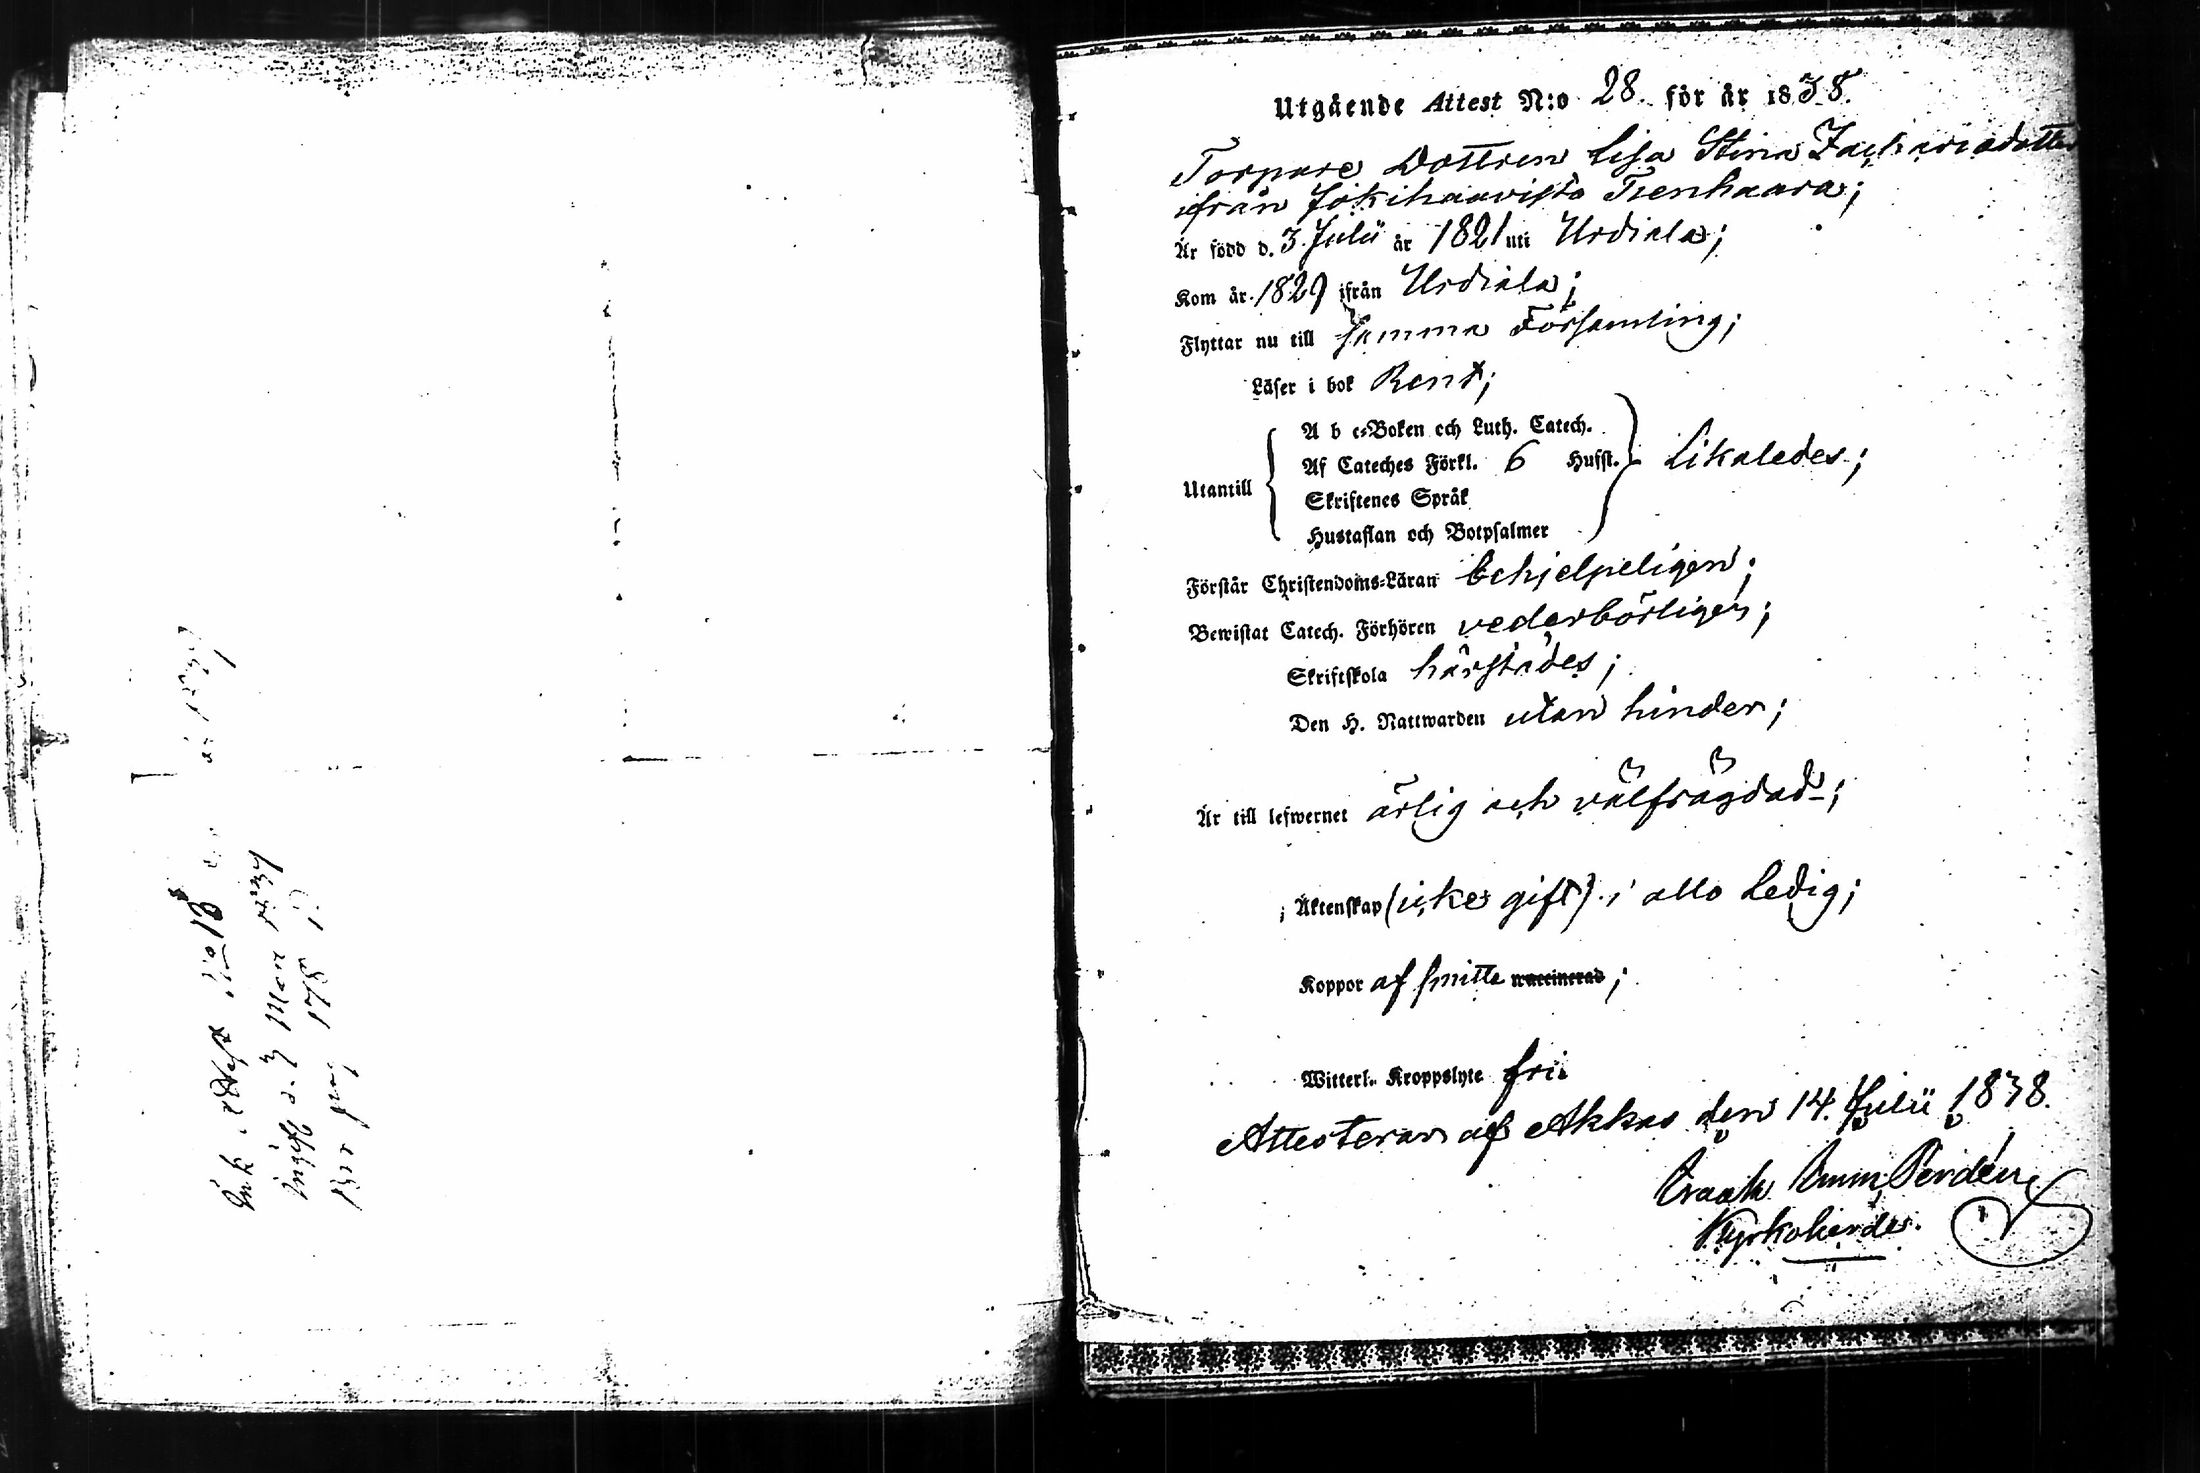 Ink. Attest No 18
år 1837
Ingift d. 3 Mars 1837
Utgående Attest N:o 28. för år 1838.
Torpare Dottren Lisa Stina Zachariadotter
ifrån Jokihaavisto Tienhaara;
Är född d. 3 Julii år 1821 uti Urdiala;
Kom år 1829 ifrån Urdiala;
Flyttar nu till samma Församling;
Läser i bok Rent;
Utantill
A b c-Boken och Luth. Catech.
Af Cateches Förkl. 6 Hufst.
Skriftenes Språk
Hustaflan och Botpsalmer
Likaledes;
Förstår Christendoms-Läran behjelpeligen;
Bewistat Catech. Förhören vederbörligen;
Skriftskola härstädes;
Den H. Nattwarden utan hinder;
Är till lefwernet ärlig och välfrägdad;
i Äktenskap (icke gift). i allo Ledig;
Koppor af smitta waccinerad;
Witterl. Kroppslyte fri
Attesteras af Akkas den 14. Julii 1838.
Kyrkoherde.